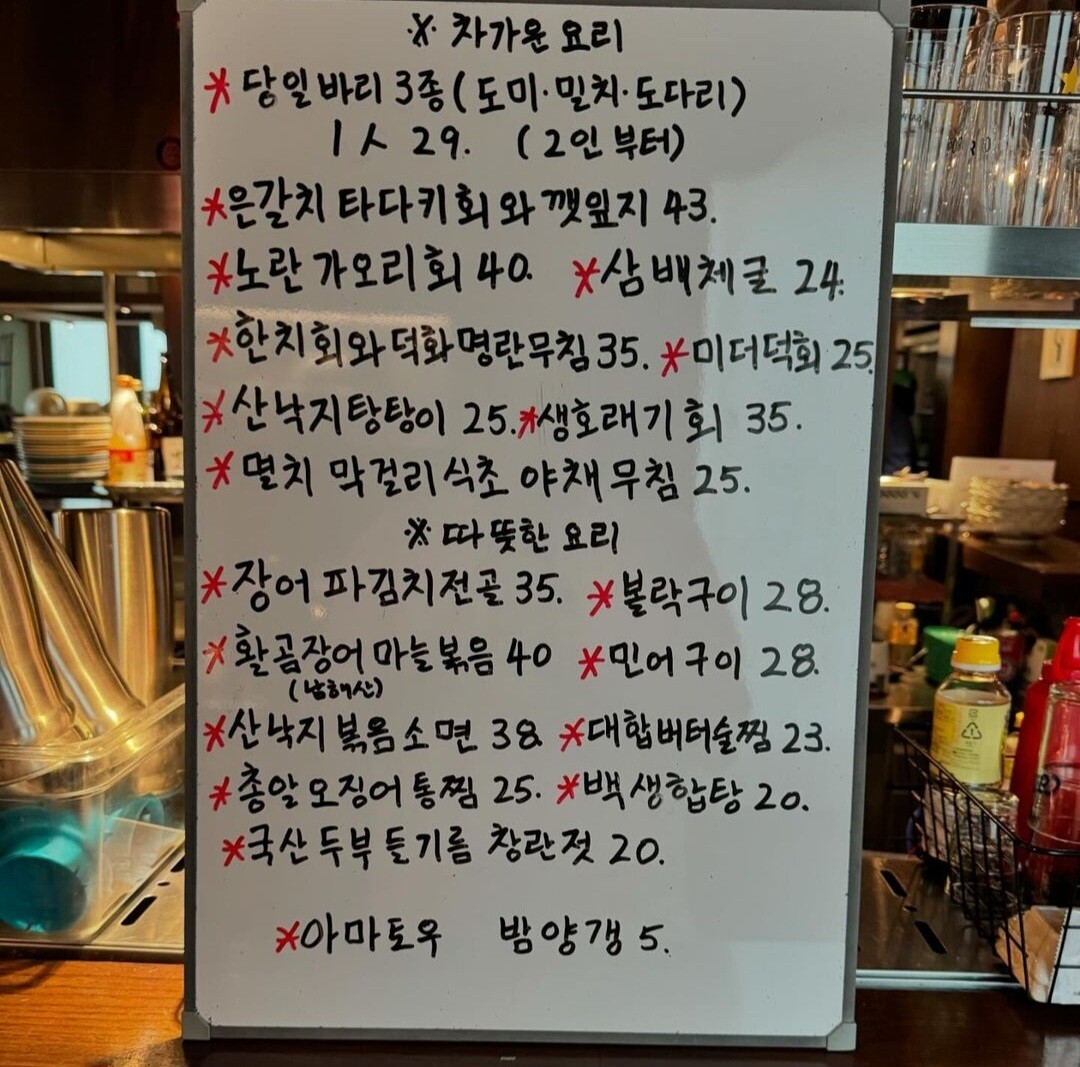 ※ 차가운 요리
* 당일바리 3종 (도미·밀치·도다리)
1人 29. (2인 부터)
*은갈치 타다키회와 깻잎지 43.
*노란 가오리회 40. *삼배체굴 24.
*한치회와 덕화명란무침 35. *미더덕회 25.
*산낙지탕탕이 25. *생호래기 회 35.
*멸치 막걸리식초 야채무침 25.
※ 따뜻한 요리
*장어 파김치전골 35. *볼락구이 28.
*활곰장어 마늘볶음 40 *민어구이 28.
(남해산)
*산낙지볶음소면 38. *대합버터술찜 23.
*총알오징어통찜 25. *백생합탕 20.
*국산두부 들기름 창란젓 20.
*아마토우 밤양갱 5.